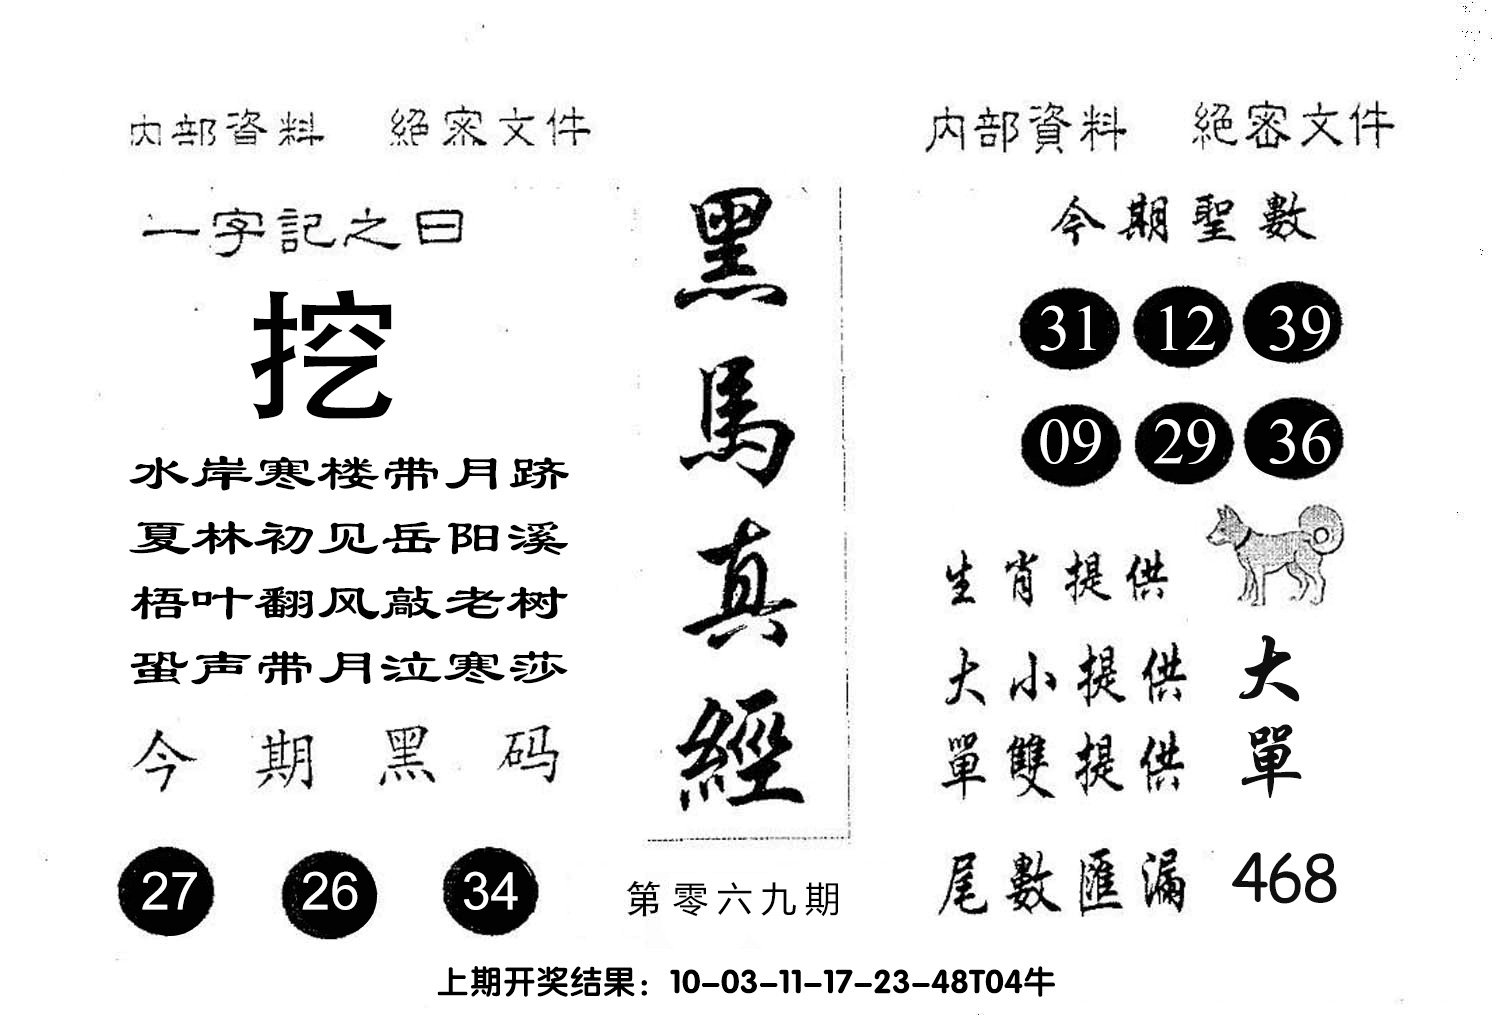 内部資料 絕密文件
一字記之曰
挖
水岸寒楼带月跻
夏林初见岳阳溪
梧叶翻风敲老树
蛩声带月泣寒莎
今期黑码
27 26 34
黑馬真經
第零六九期
内部資料 絕密文件
今期聖數
31 12 39
09 29 36
生肖提供
大小提供 大
單雙提供 單
尾數匯漏 468
上期开奖结果：10-03-11-17-23-48T04牛